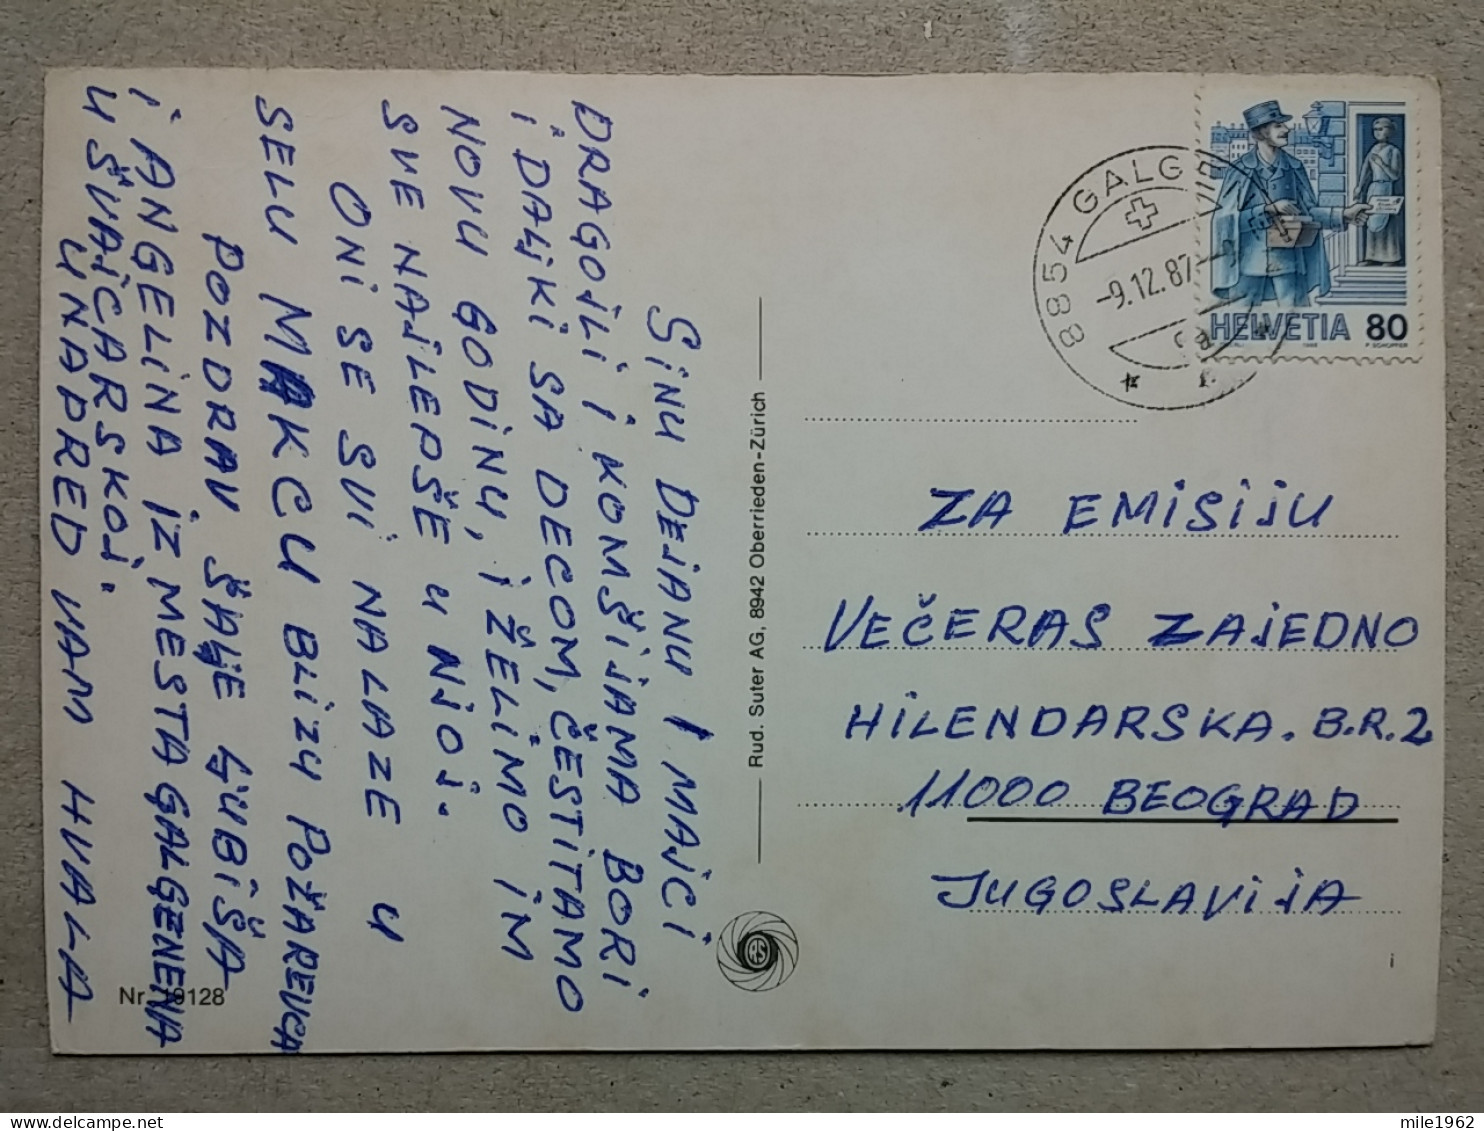 SINU DEJANU I MAJCI
DRAGOJLI I KOMŠIJAMA BORI
I DALJKI SA DECOM, ČESTITAMO
NOVU GODINU, I ŽELIMO IM
SVE NAJLEPŠE U NJOJ.
ONI SE SVI NALAZE U
SELU MAKCU BLIZU POŽAREVCA
POZDRAV ŠALJE LJUBIŠA
I ANGELINA IZ MESTA GALGENENA
U ŠVAJCARSKOJ.
UNAPRED VAM HVALA
Nr. 19128
Rud. Suter AG, 8942 Oberrieden-Zürich
8854 GALGENEN
-9.12.87
HELVETIA 80
ZA EMISIJU
VEČERAS ZAJEDNO
HILENDARSKA. B.R.2
11000 BEOGRAD
JUGOSLAVIJA
i
mile1962